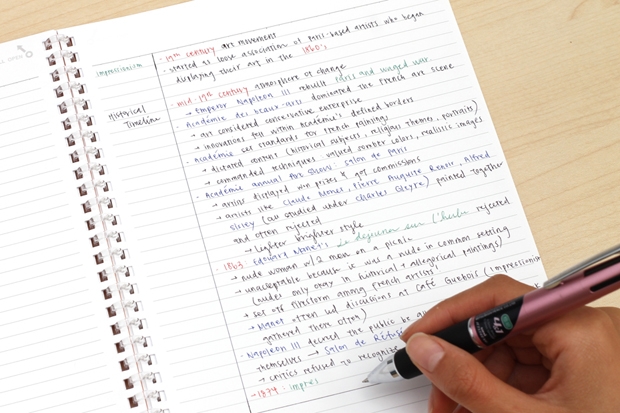 Impressionism
· 19th century art movement
· started as loose association of Paris-based artists who began
displaying their art in the 1860's
Historical
Timeline
· mid 19th century atmosphere of change
→ Emperor Napoleon III rebuilt Paris and waged war
· Académie des beaux-arts dominated the French art scene
→ art considered conservative enterprise
→ innovations fall within Académie's defined borders
· Académie set standards for French paintings
→ dictated content (historical subjects, religious themes, portraits)
→ commanded techniques valued somber colors, realistic images
· Académie annual art show: Salon de Paris
→ artists displayed win prizes & get commissions
→ artists like Claude Monet, Pierre Auguste Renoir, Alfred
Sisley (all studied under Charles Gleyre) painted together
and often rejected
→ lighter brighter style
· 1863 Edouard Monet's le déjeuner sur l'herbe rejected
→ nude woman w/2 men on a picnic
→ unacceptable because it was a nude in common setting
(nudes only okay in historical & allegorical paintings)
→ set off firestorm among French artists
→ Manet often led discussions at Café Guerbois (impressionis
gathered there often)
· Napoleon III decreed the public be a
themselves → Salon de Refus
→ critics refused to recogniz
· 1874: impres